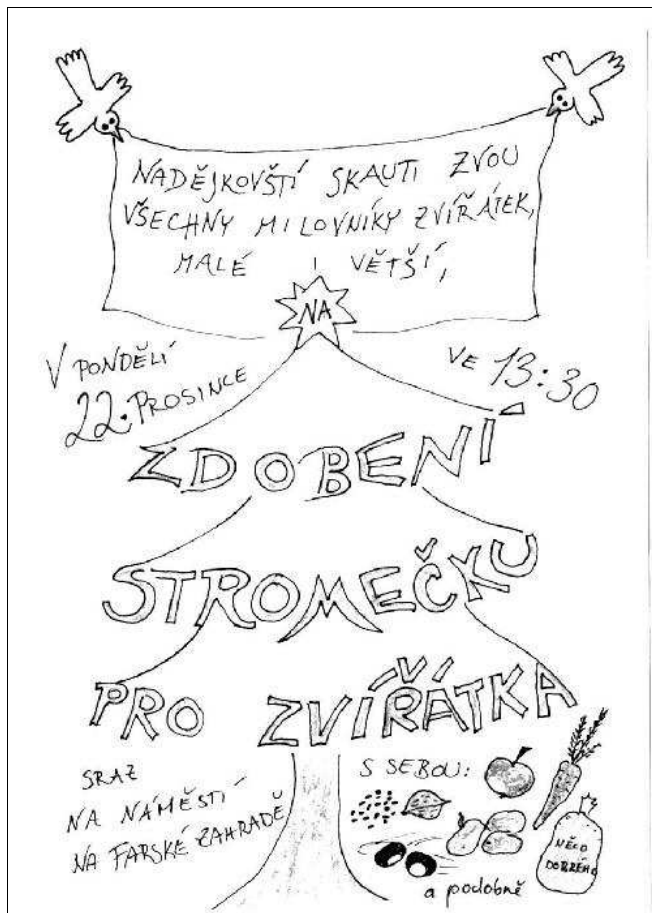 NADĚJKOVŠTÍ SKAUTI ZVOU
VŠECHNY MILOVNÍKY ZVÍŘÁTEK,
MALÉ I VĚTŠÍ,
NA
V PONDĚLÍ
22. PROSINCE
VE 13:30
ZDOBENÍ
STROMEČKU
PRO ZVÍŘÁTKA
SRAZ
NA NÁMĚSTÍ
NA FARSKÉ ZAHRADĚ
S SEBOU:
NĚCO
DOBRÉHO
a podobně